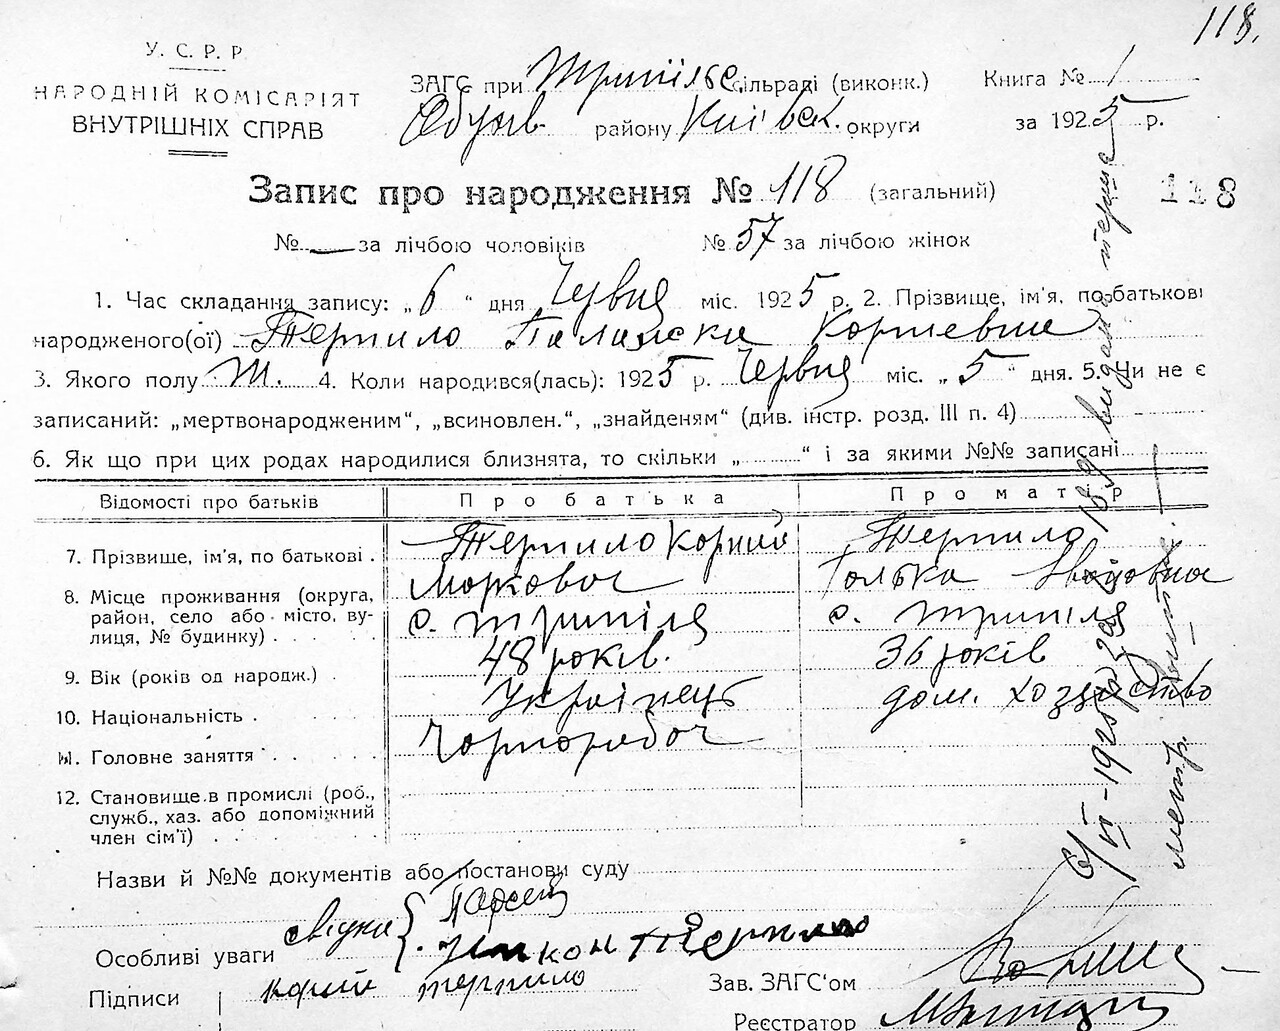 118.
У. С. Р. Р.
НАРОДНІЙ КОМІСАРІЯТ
ВНУТРІШНІХ СПРАВ
ЗАГС при Трипільс. сільраді (виконк.)
Обухів. району Київськ. округи
Книга № 1
за 1925 р.
Запис про народження № 118 (загальний)
118
№ — за лічбою чоловіків № 57 за лічбою жінок
1. Час складання запису: „6“ дня Червня міс. 1925 р. 2. Прізвище, ім'я, по батькові
народженого(ої) Терпило Палажка Корніевна
3. Якого полу Ж. 4. Коли народився(лась): 1925 р. Червня міс. „5“ дня. 5. Чи не є
записаний: „мертвонародженим“, „всиновлен.“, „знайденям“ (див. інстр. розд. III п. 4)
6. Як що при цих родах народилися близнята, то скільки „ “ і за якими №№ записані
Відомості про батьків Про батька Про матір
7. Прізвище, ім'я, по батькові . Терпило Корній Маркович Терпило
8. Місце проживання (округа, район, село або місто, вулиця, № будинку) . . . с. Трипілля с. Трипілля
9. Вік (років од народж.) . 48 років. 36 років
10. Національність . Українець дом. хозяйство
11. Головне заняття . . . . Чорнороб
12. Становище в промислі (роб.,
служб., хаз. або допоміжний
член сім'ї) . . . .
Назви й №№ документів або постанови суду
Особливі уваги свідки { Никон Терпило
Підписи Корній Терпило
Зав. ЗАГС'ом
Реєстратор
6/VI-1925 р. за № 169 видано перше
метр.